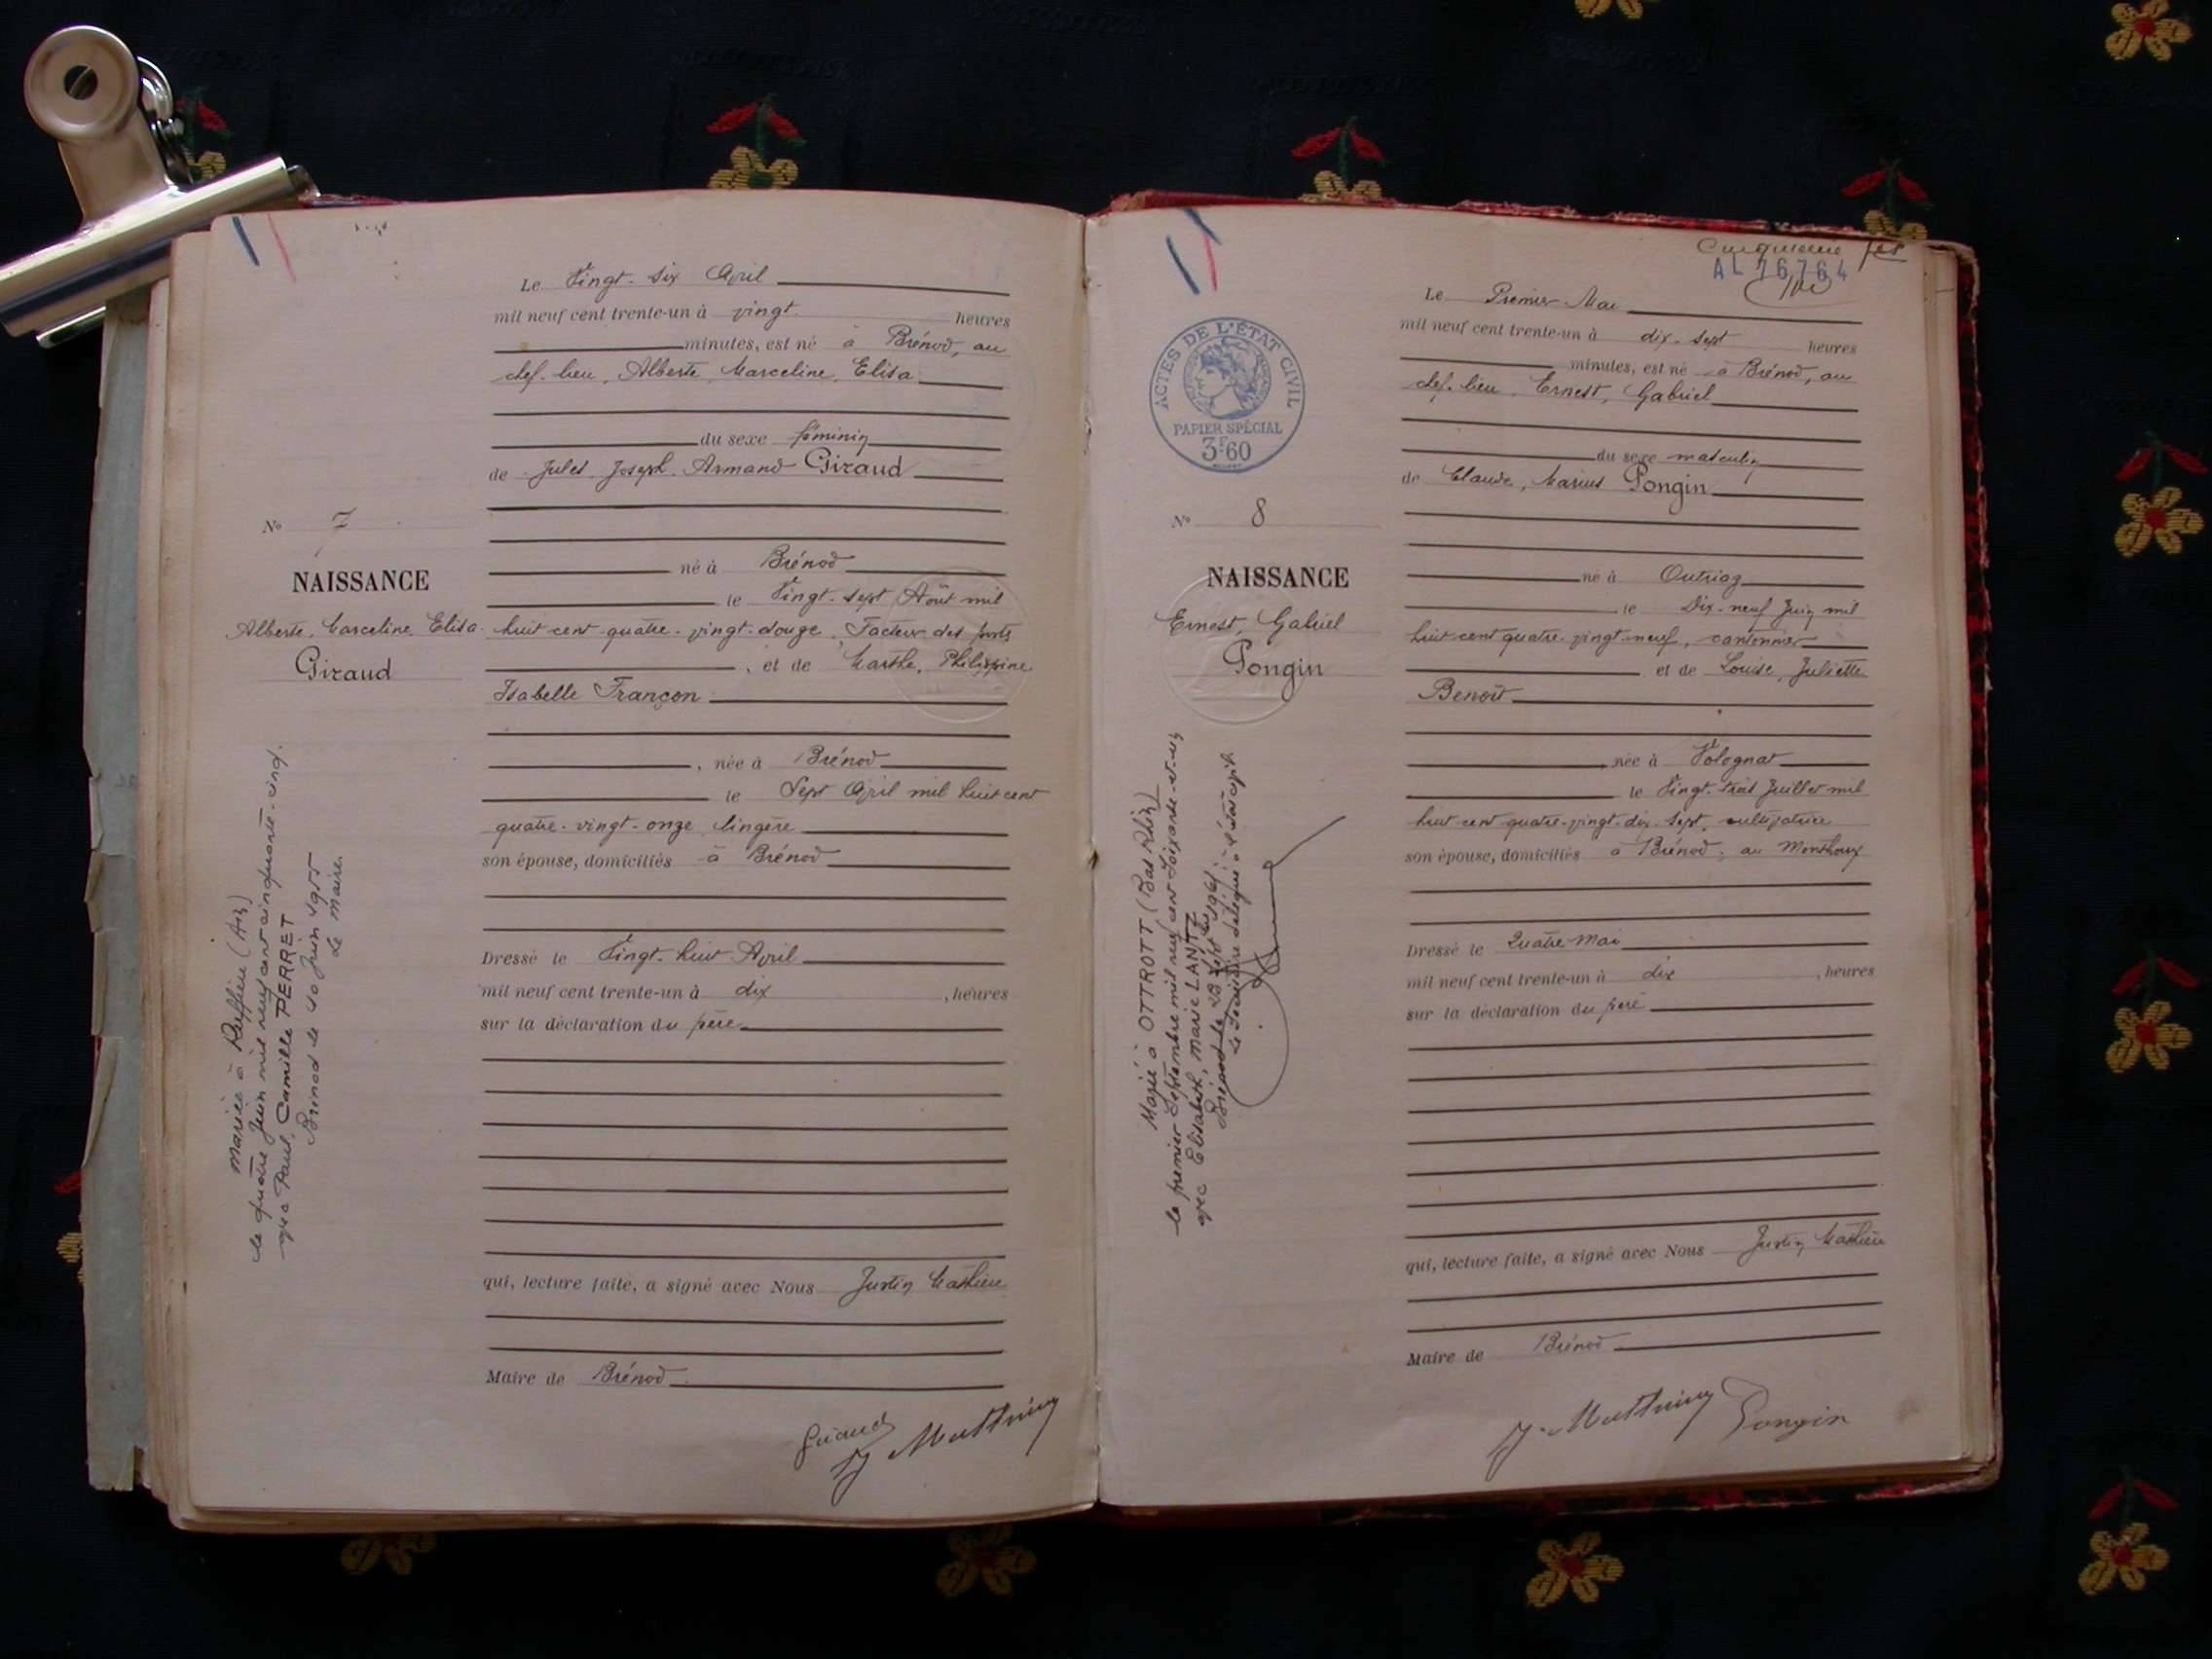 Le Vingt-six Avril
mil neuf cent trente-un à vingt heures
minutes, est né à Brénod, au
chef-lieu, Alberte, Marceline, Elisa
du sexe féminin
de Jules, Joseph, Armand Giraud
No 7
né à Brénod
NAISSANCE
le Vingt-sept Août mil
Alberte, Marceline, Elisa
huit cent quatre-vingt-douze, Facteur des postes
Giraud
, et de Marthe, Philippine
Isabelle Françon
, née à Brénod
le Sept Avril mil huit cent
quatre-vingt-onze, lingère
son épouse, domiciliés à Brénod
Mariée à Ruffieu (Ain)
le quatre Juin mil neuf cent cinquante-cinq.
avec Paul, Camille PERRET
Brénod le 10 Juin 1955
Le Maire.
Dressé le Vingt-huit Avril
mil neuf cent trente-un à dix , heures
sur la déclaration du père
qui, lecture faite, a signé avec Nous Justin Mathieu
Maire de Brénod
Giraud
J Matthieu
Cinquième fet
AL 76,764
ACTES DE L'ÉTAT CIVIL
PAPIER SPÉCIAL
3F60
Le Premier Mai
mil neuf cent trente-un à dix-sept heures
minutes, est né à Brénod, au
chef-lieu, Ernest, Gabriel
du sexe masculin
de Claude, Marius Pongin
No 8
né à Outriaz
NAISSANCE
le Dix-neuf Juin mil
Ernest, Gabriel
huit cent quatre-vingt-neuf, cantonnier
Pongin
et de Louise, Juliette
Benoit
, née à Volognat
le Vingt-trois Juillet mil
huit cent quatre-vingt-dix-sept, cultivatrice
son épouse, domiciliés à Brénod, au Monthoux
Marié à OTTROTT (Bas Rhin)
le premier Septembre mil neuf cent soixante-et-un
avec Elisabeth, Marie LANTZ
Brénod le 28 Sept 1961
Le Secrétaire délégué
Dressé le Quatre Mai
mil neuf cent trente-un à dix , heures
sur la déclaration du père
qui, lecture faite, a signé avec Nous Justin Mathieu
Maire de Brénod
J. Matthieu Pongin